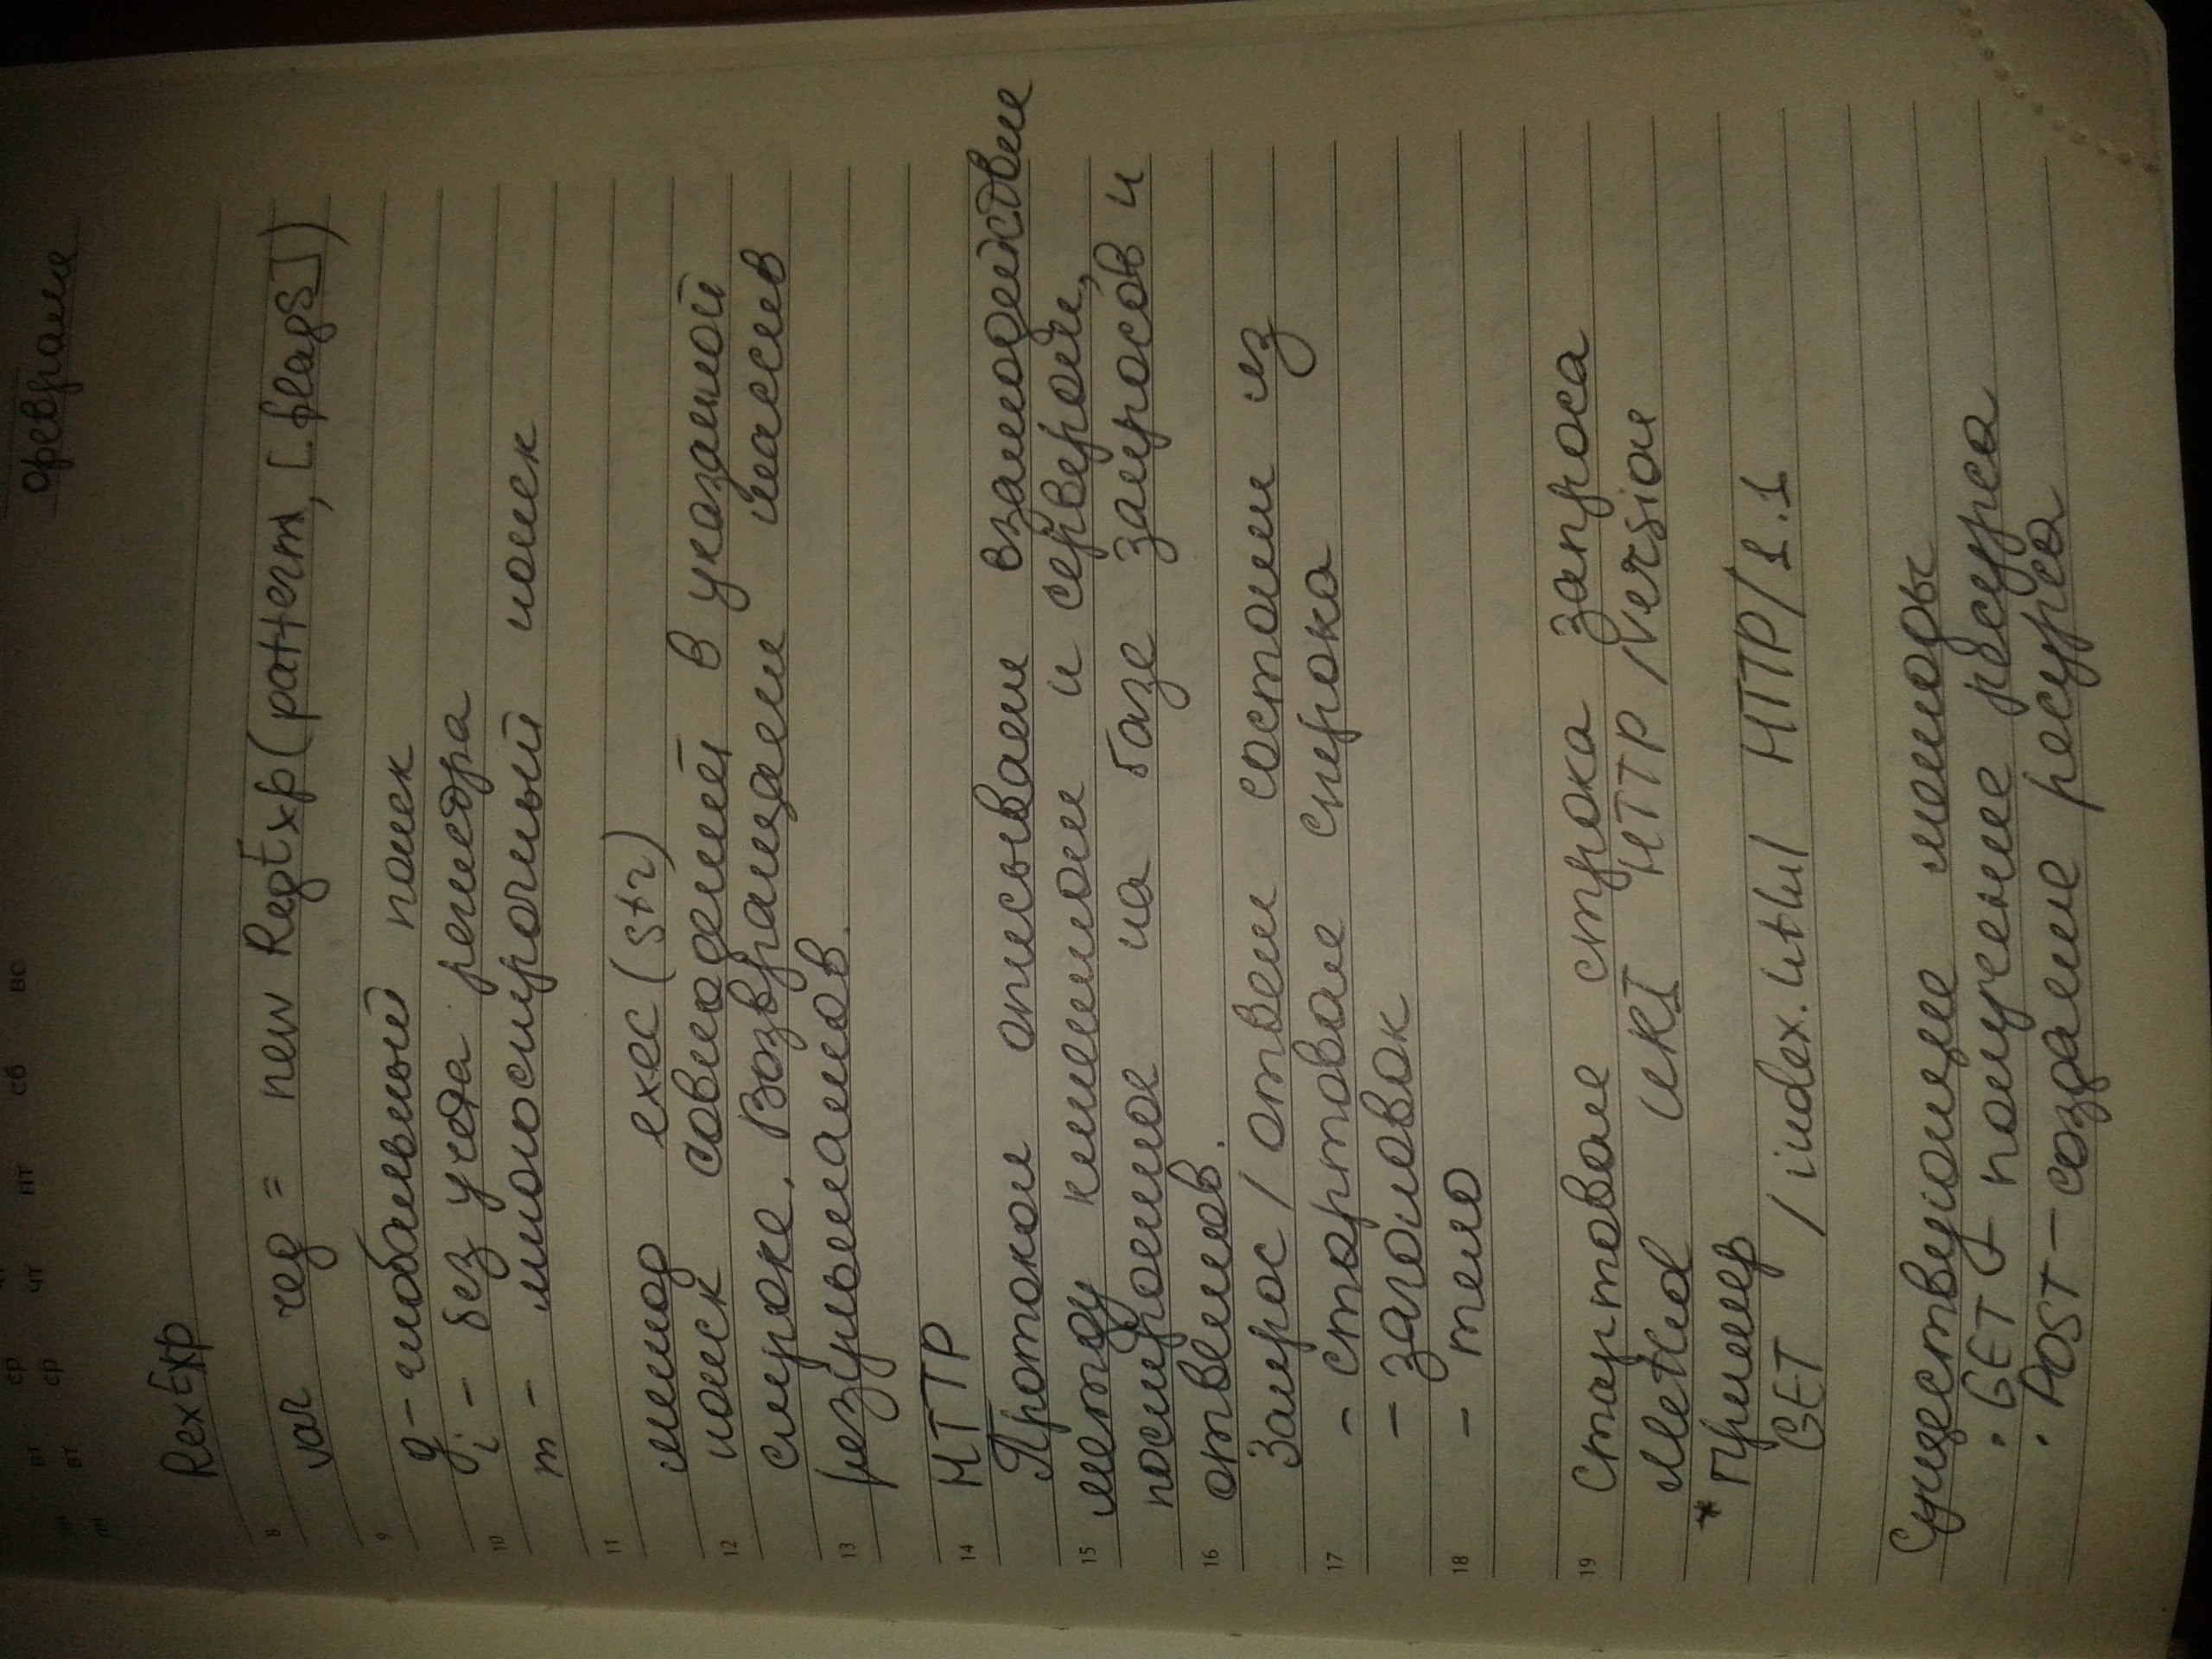 фреврале
пн вт ср чт пт сб вс
RexExp
8
var reg = new RegExp(pattern, [.flags])
9
g - глобальный поиск
i - без учета регистра
10
m - многострочный поиск
11
метод exec(str)
поиск совпадений в указанной
12
строке. Возвращает массив
13
результатов.
HTTP
14
Протокол описывает взаимодействие
между клиентом и сервером,
15
построенное на базе запросов и
16
ответов.
Запрос / ответ состоит из
17
- стартовые строка
- заголовок
18
- тело
19
Стартовые строка запроса
Method URI HTTP/Version
* Пример
GET /index.html HTTP/1.1
Существующие методы
· GET - получение ресурса
· POST - создание ресурса